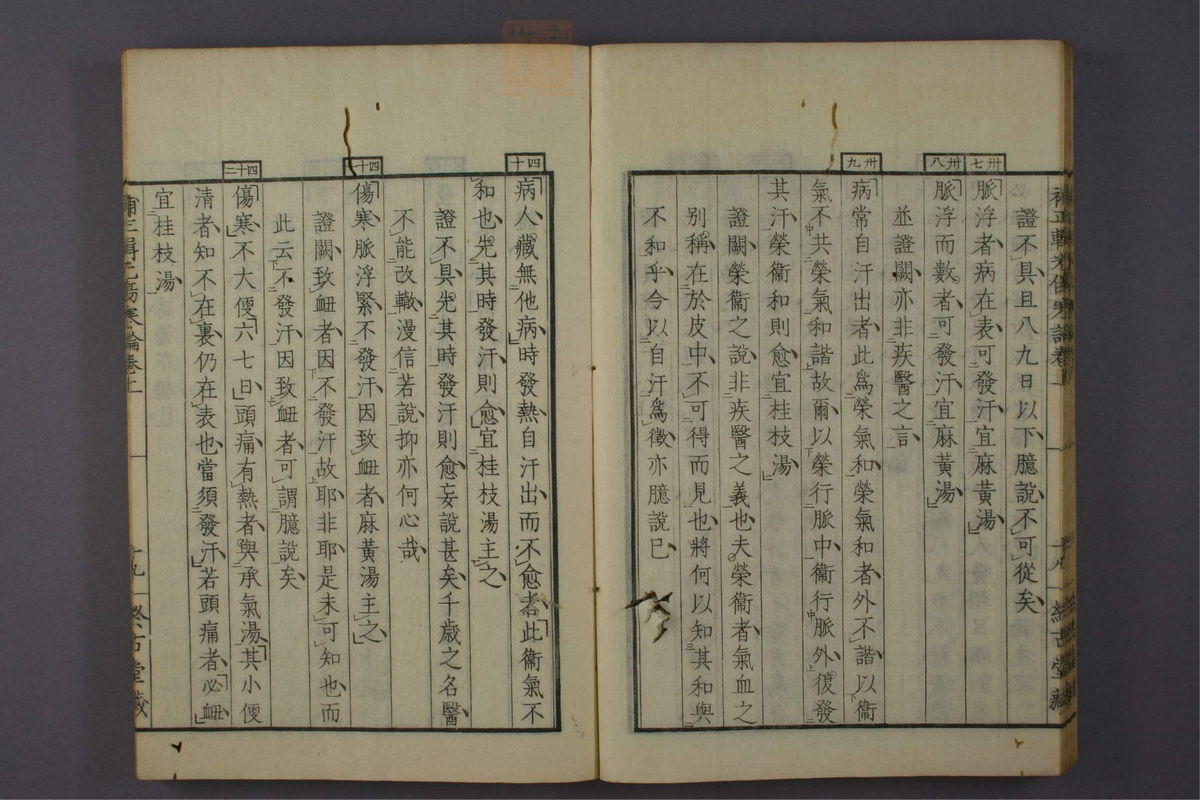 證不具且八九日以下臆說不可從矣
卅七
脈浮者病在表可發汗宜麻黃湯
卅八
脈浮而數者可發汗宜麻黃湯
並證闕亦非疾醫之言
卅九
病常自汗出者此爲榮氣和榮氣和者外不諧以衞
氣不共榮氣和諧故爾以榮行脈中衞行脈外復發
其汗榮衞和則愈宜桂枝湯
證闕榮衞之說非疾醫之義也夫榮衞者氣血之
別稱在於皮中不可得而見也將何以知其和與
不和乎今以自汗爲徵亦臆說已
四十
病人藏無他病時發熱自汗出而不愈者此衞氣不
和也先其時發汗則愈宜桂枝湯主之
證不具先其時發汗則愈妄說甚矣千歲之名醫
不能改轍漫信若說抑亦何心哉
四十一
傷寒脈浮緊不發汗因致衄者麻黃湯主之
證闕致衄者因不發汗故耶非耶是未可知也而
此云不發汗因致衄者可謂臆說矣
四十二
傷寒不大便六七日頭痛有熱者與承氣湯其小便
清者知不在裏仍在表也當須發汗若頭痛者必衄
宜桂枝湯
十九
終古堂藏